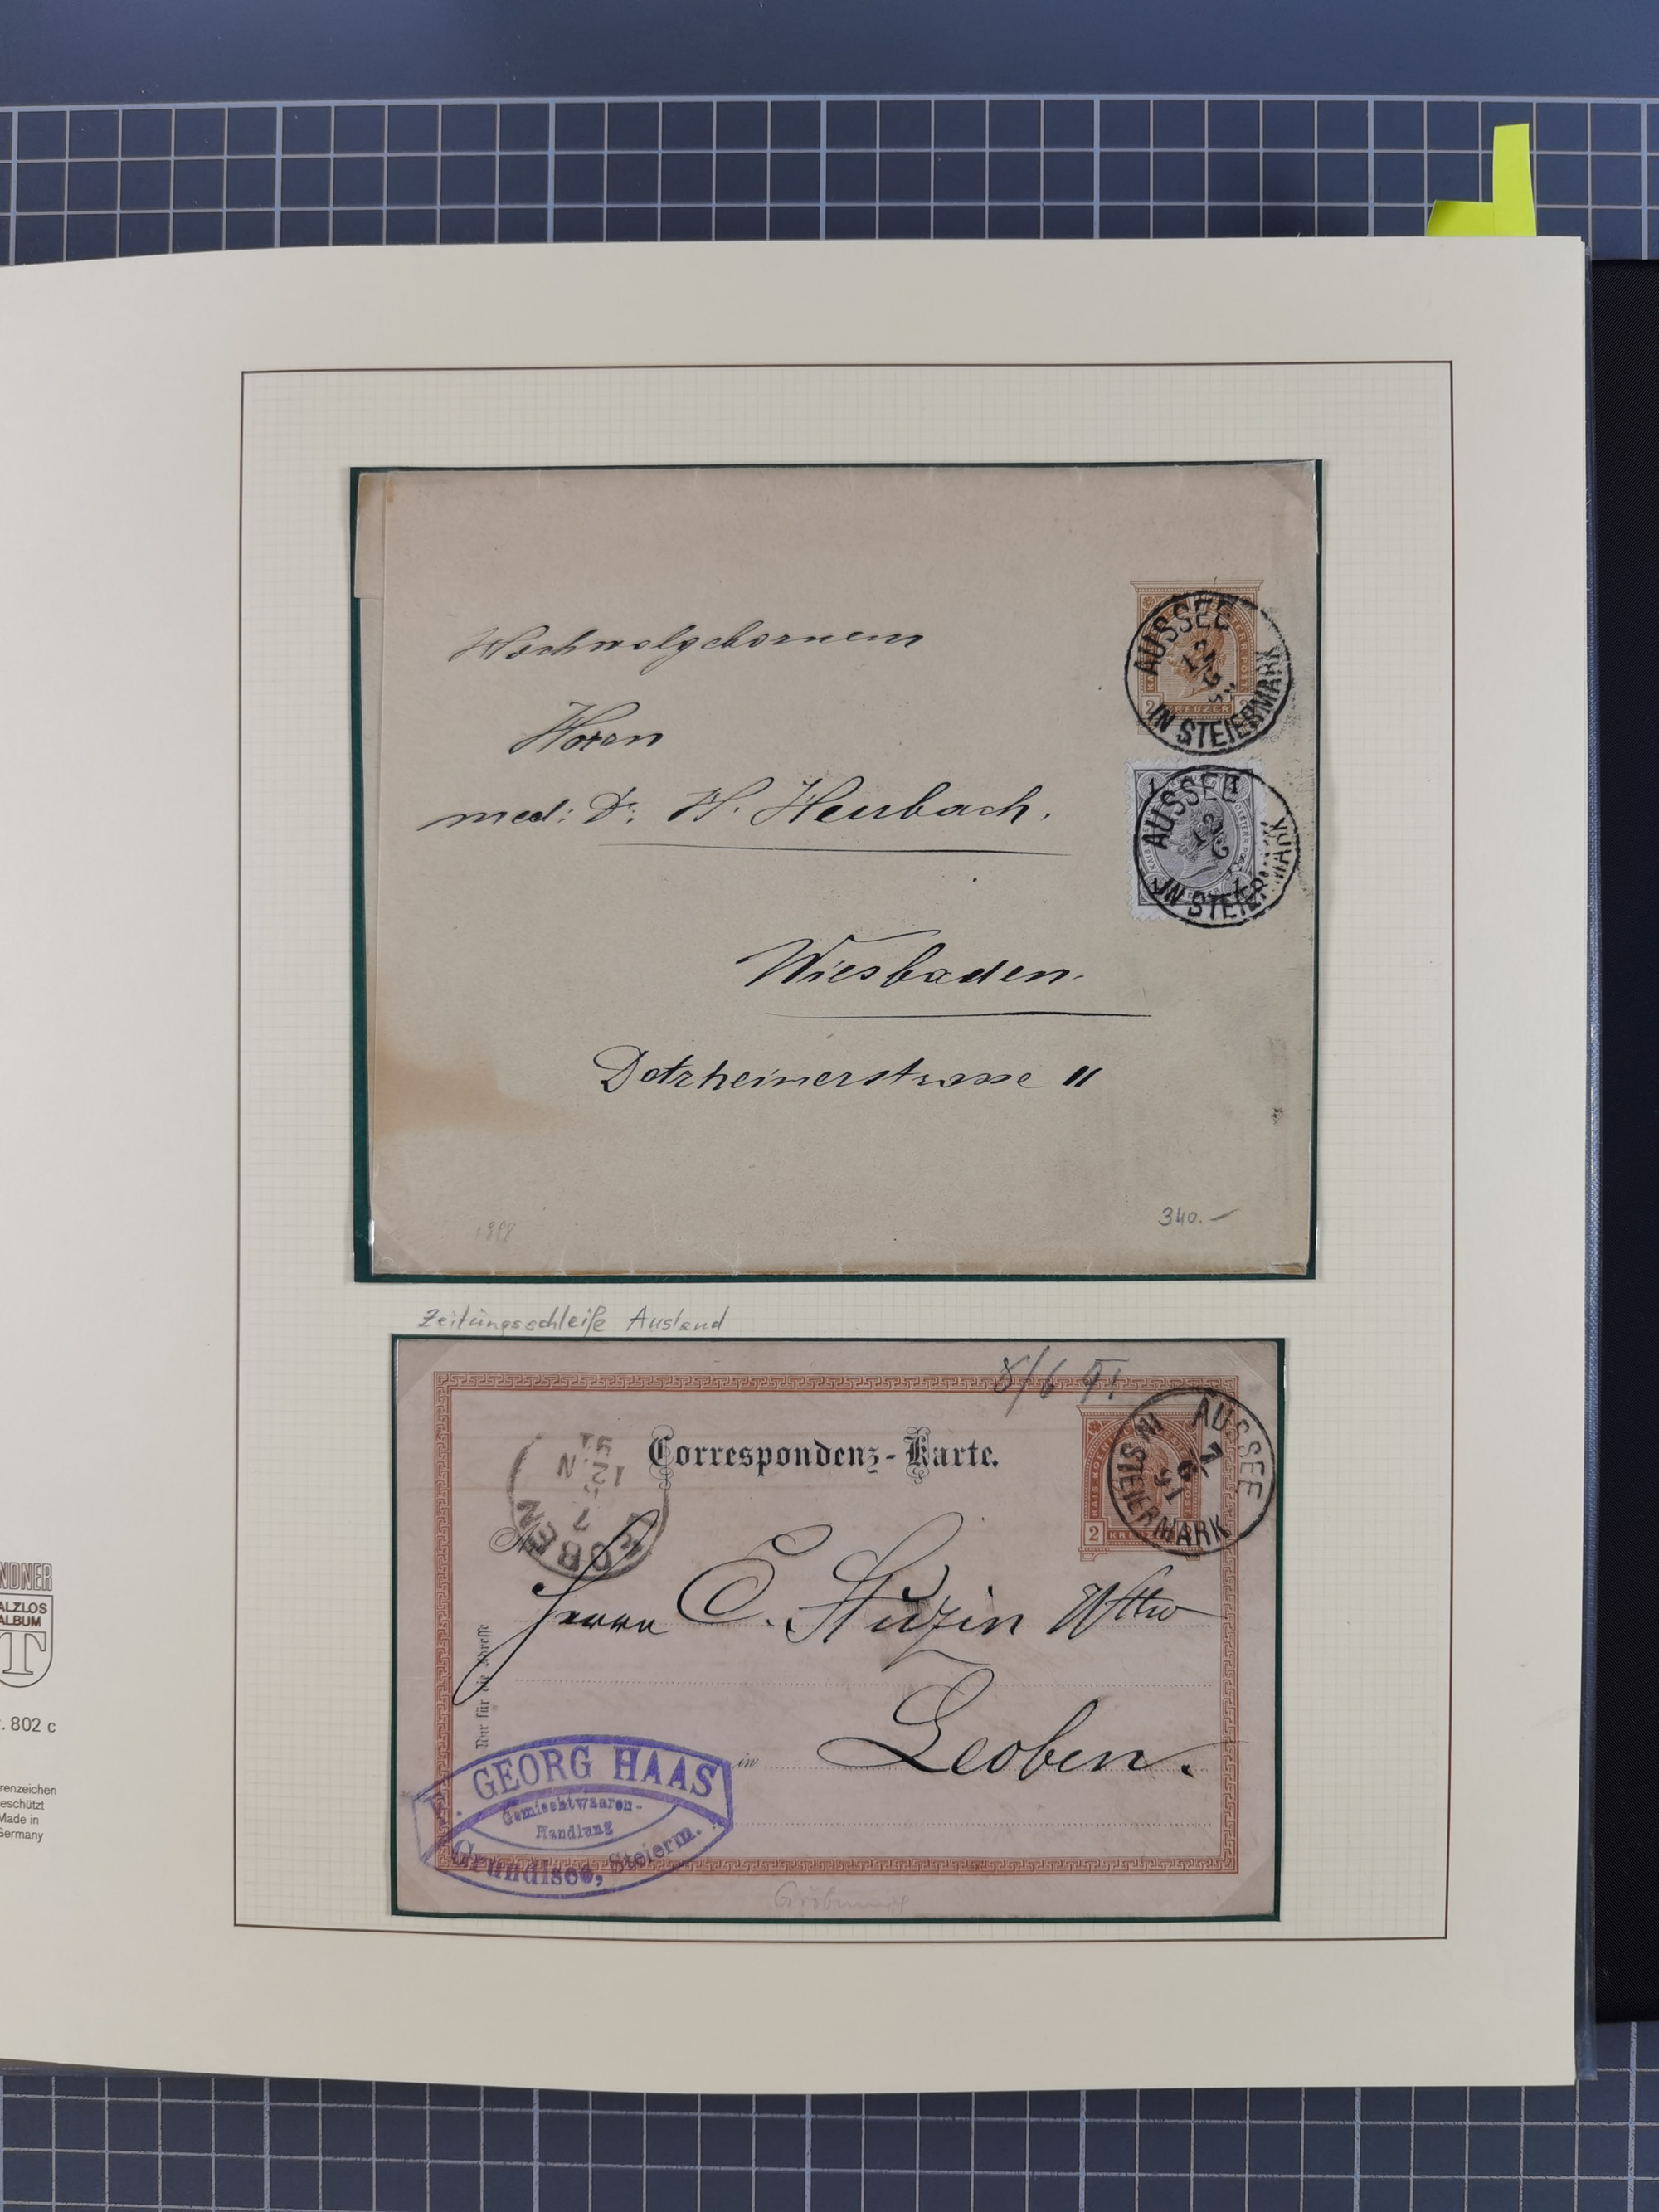 Hochwolgebornem
Herrn
med: Dr. H. Heubach.
Wiesbaden.
Dotzheimerstrasse 11
2 KREUZER
AUSSEE
12
6
IN STEIERMARK
1 1
AUSSEE
12
6
IN STEIERMARK
1898
340.–
Zeitungsschleife Ausland
8/6 91
Correspondenz-Karte.
AUSSEE
7
6
91
IN STEIERMARK
2 KREUZER
LEOBEN
7
12.N
91
An
Herrn C.
Leoben.
in
Nur für die Adresse
GEORG HAAS
Gemischtwaaren-
Handlung
Grundlsee, Steierm.
Gröbming
NDNER
ALZLOS
ALBUM
T
r. 802 c
renzeichen
eschützt
Made in
Germany